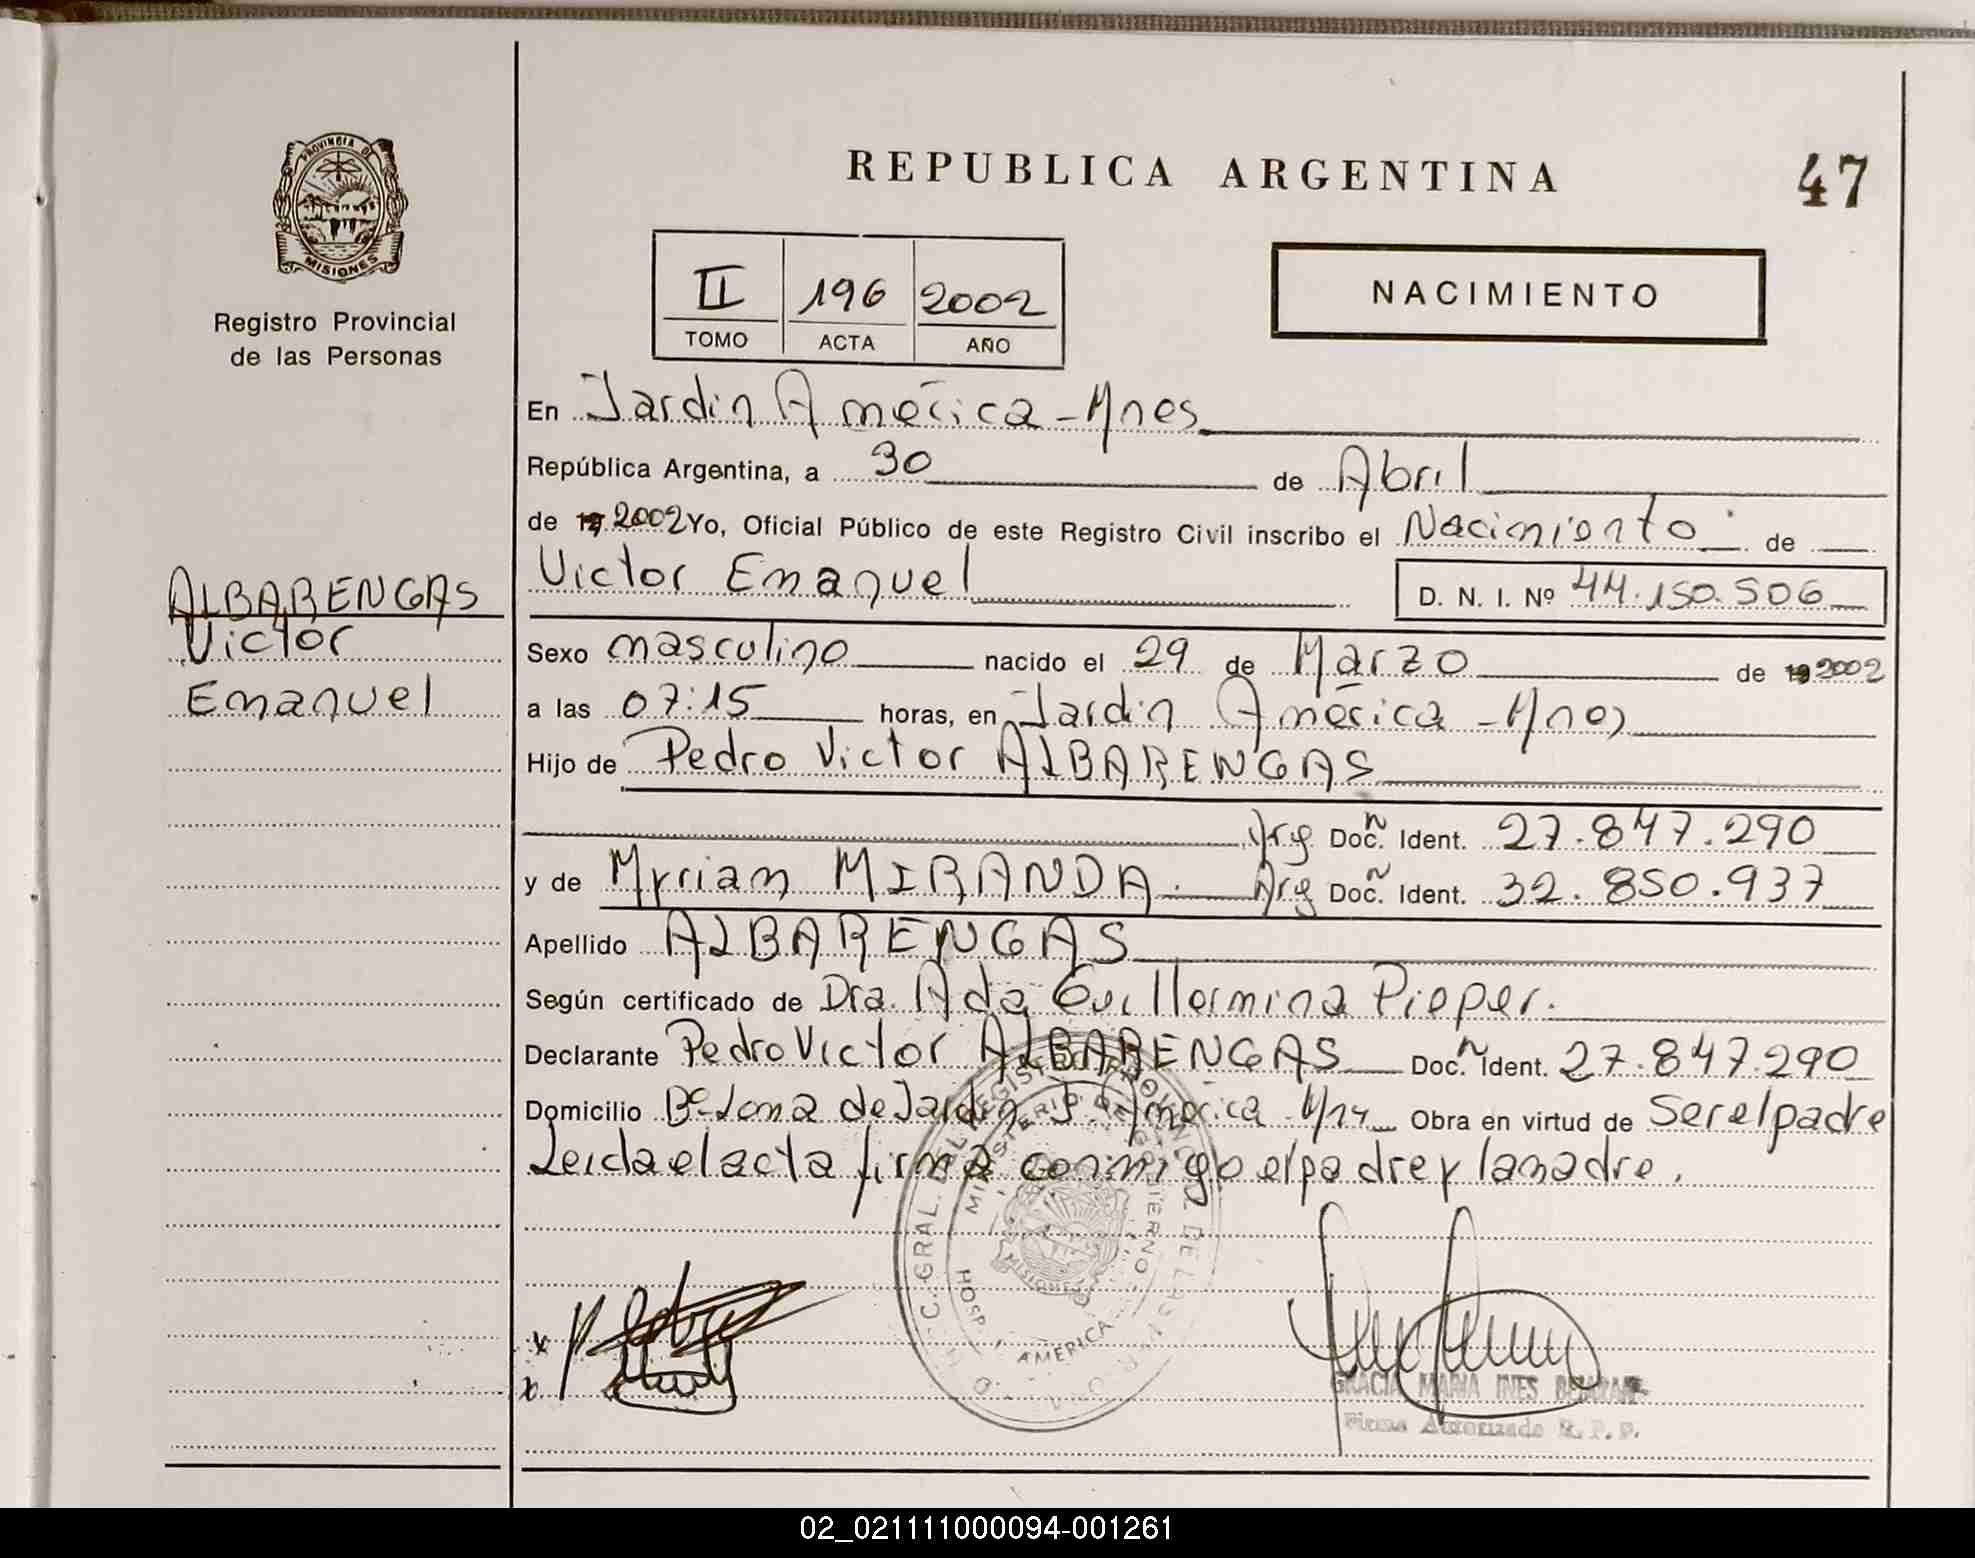 REPUBLICA ARGENTINA
47
PROVINCIA DE
MISIONES
Registro Provincial
de las Personas
II 196 2002
TOMO ACTA AÑO
NACIMIENTO
En Jardin América - Mnes
República Argentina, a 30 de Abril
de 19 2002 Yo, Oficial Público de este Registro Civil inscribo el Nacimiento de
Victor Emanuel D. N. I. Nº 44.150.506
ALBARENGAS
Victor
Emanuel
Sexo masculino nacido el 29 de Marzo de 19 2002
a las 07:15 horas, en Jardin América - Mnes
Hijo de Pedro Victor ALBARENGAS
Arg Doc. n Ident. 27.847.290
y de Myrian MIRANDA. Arg Doc. n Ident. 32.850.937
Apellido ALBARENGAS
Según certificado de Dra. Ada Guillermina Pieper.
Declarante Pedro Victor ALBARENGAS Doc. n Ident. 27.847.290
Domicilio Bº Loma de Jardin J América Obra en virtud de Ser el padre
Leida el acta firma conmigo el padre y la madre.
MINISTERIO DE GOBIERNO
MISIONES
HOSP. AMERICA
GRACIA MARIA INES
Firma Autorizada R. P. P.
02_021111000094-001261